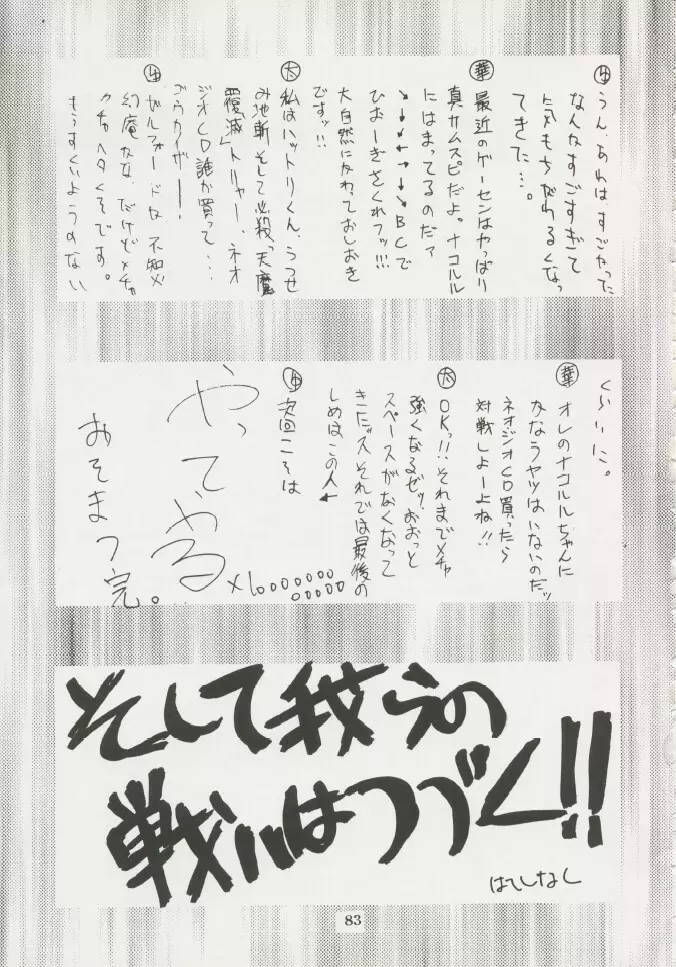 うん、あれは、すごかった
なんかすごすぎて
気もちがわるくなっ
てきた…。
華 最近のゲーセンはやっぱり
真サムスピだよ。ナコルル
にはまってるのだァ
↘↓↙←→↓↘BCで
ひおーぎさくれフッ!!!
大自然にかわっておしおき
ですッ!!
大 私はハットリくん、うつせ
み地斬そして必殺「天魔
覆滅」トリャー、ネオ
ジオCD誰か買って…
ゴウカイザー!
ガルフォードな 不知火
幻庵なな、だけどメチャ
クチャヘタくそです。
もうすくいようのない
くらいに。
華 オレのナコルルちゃんに
かなうヤツはいないのだッ
ネオジオCD買ったら
対戦しよーよね!!
大 OKっ!!それまでメチャ
強くなるゼッ、おおっと
スペースがなくなって
きたッスそれでは最後の
しめはこの人←
次回こそは
やってやる
×1000000000000
おそまつ完。
そして我らの
戦いはつづく!!
はてしなく
83